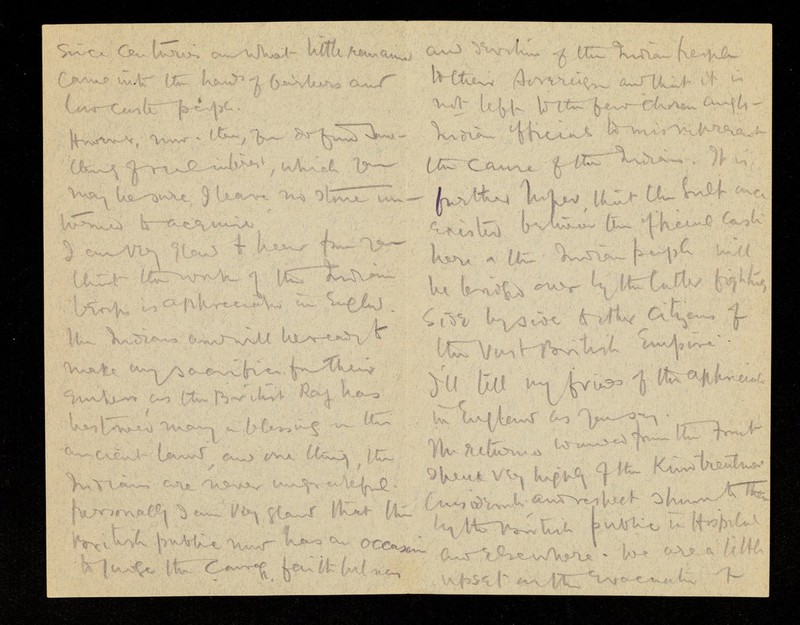 since centuries and what little remained
came into the hands of bankers and
low caste people.
However, now & then, you do find some-
thing of real interest, which you
may be sure, I leave no stone un-
turned to acquire.
I am very glad to hear from you
that the work of the Indian
troops is appreciated in England.
The Indians are will be ready to
make any sacrifice for their
Emperor, as the British Raj has
bestowed many a blessing on this
ancient land, and one thing, the
Indians are never ungrateful.
Personally I am very glad that the
British public now has an occasion
to judge the courage, faithfulness
and devotion of the Indian people
to their Sovereign and that it is
not left to the few chosen anglo-
Indian officials to misrepresent
the cause of the Indians. It is
further hoped, that the Gulf once
existed between the official caste
here & the Indian people will
be bridged over by the latter fighting
side by side to other Citizens of
the Vast British Empire.
I'll tell my friends of the appreciation
in England as you say.
The returned wounded from the Front
speak very highly of the Kind treatment
and respect shown to them
by the British public in Hospital
and elsewhere. We are a little
upset on the Evacuation of